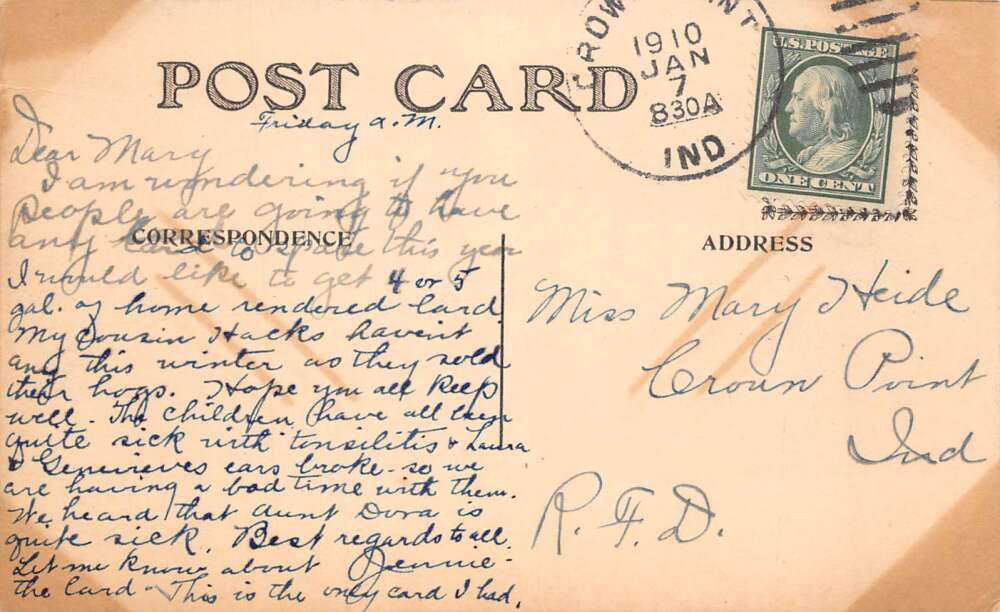 POST CARD
CROWN POINT
1910
JAN
7
830A
IND
U.S. POSTAGE
ONE CENT
Friday a.M.
Dear Mary
I am wondering if you
people are going to have
any lard to spare this year
I would like to get 4 or 5
gal. of home rendered lard
My Cousin Hacks havent
any this winter as they sold
their hogs. Hope you all keep
well. The children have all been
quite sick with tonsilitis & Laura
& Genevieves ears broke - so we
are having a bad time with them.
We heard that aunt Dora is
quite sick. Best regards to all.
Let me know about Jennie -
the lard - This is the only card I had.
CORRESPONDENCE
ADDRESS
Miss Mary Heide
Crown Point
Ind
R. F. D.